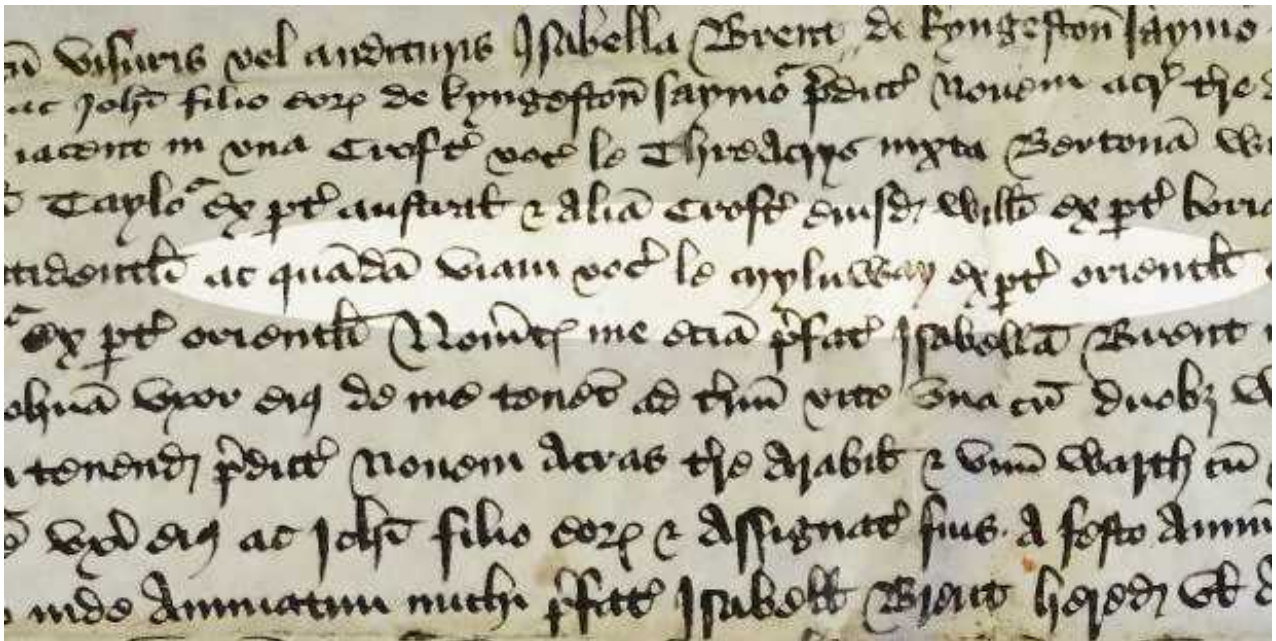 visuris vel audituris Isabella Brent de kyngeston saymo
ac Joh̄i filio eoꝝ de kyngeston saymo p̄dict̉ Novem acr̉ t̉re
iacent in una Croft̉ voc̉ le Threacrys iuxta Bertonā
Taylo ex p̱t̉ austral̉ & aliā Croft̉ eiusd̉ Will̄i ex p̱t̉
ac quādā viam voc̉ le myluway ex p̱t̉ oriental̄i
ex p̱t̉ oriental̄i me eciā p̄fat̉ Isabellā Brent
uxor eiꝰ de me tenet̉ ad t̉m̄ vite una cū duobꝫ
tenend̉ p̄dict̉ Novem Acras t̉re Arabil̉ & unū Warth cū
ux̉ eiꝰ ac Joh̄i filio eoꝝ & Assignat̉ suis A festo
inde Annuatim michi p̄fat̉ Isabell̉ Brent hered̉ vl̉